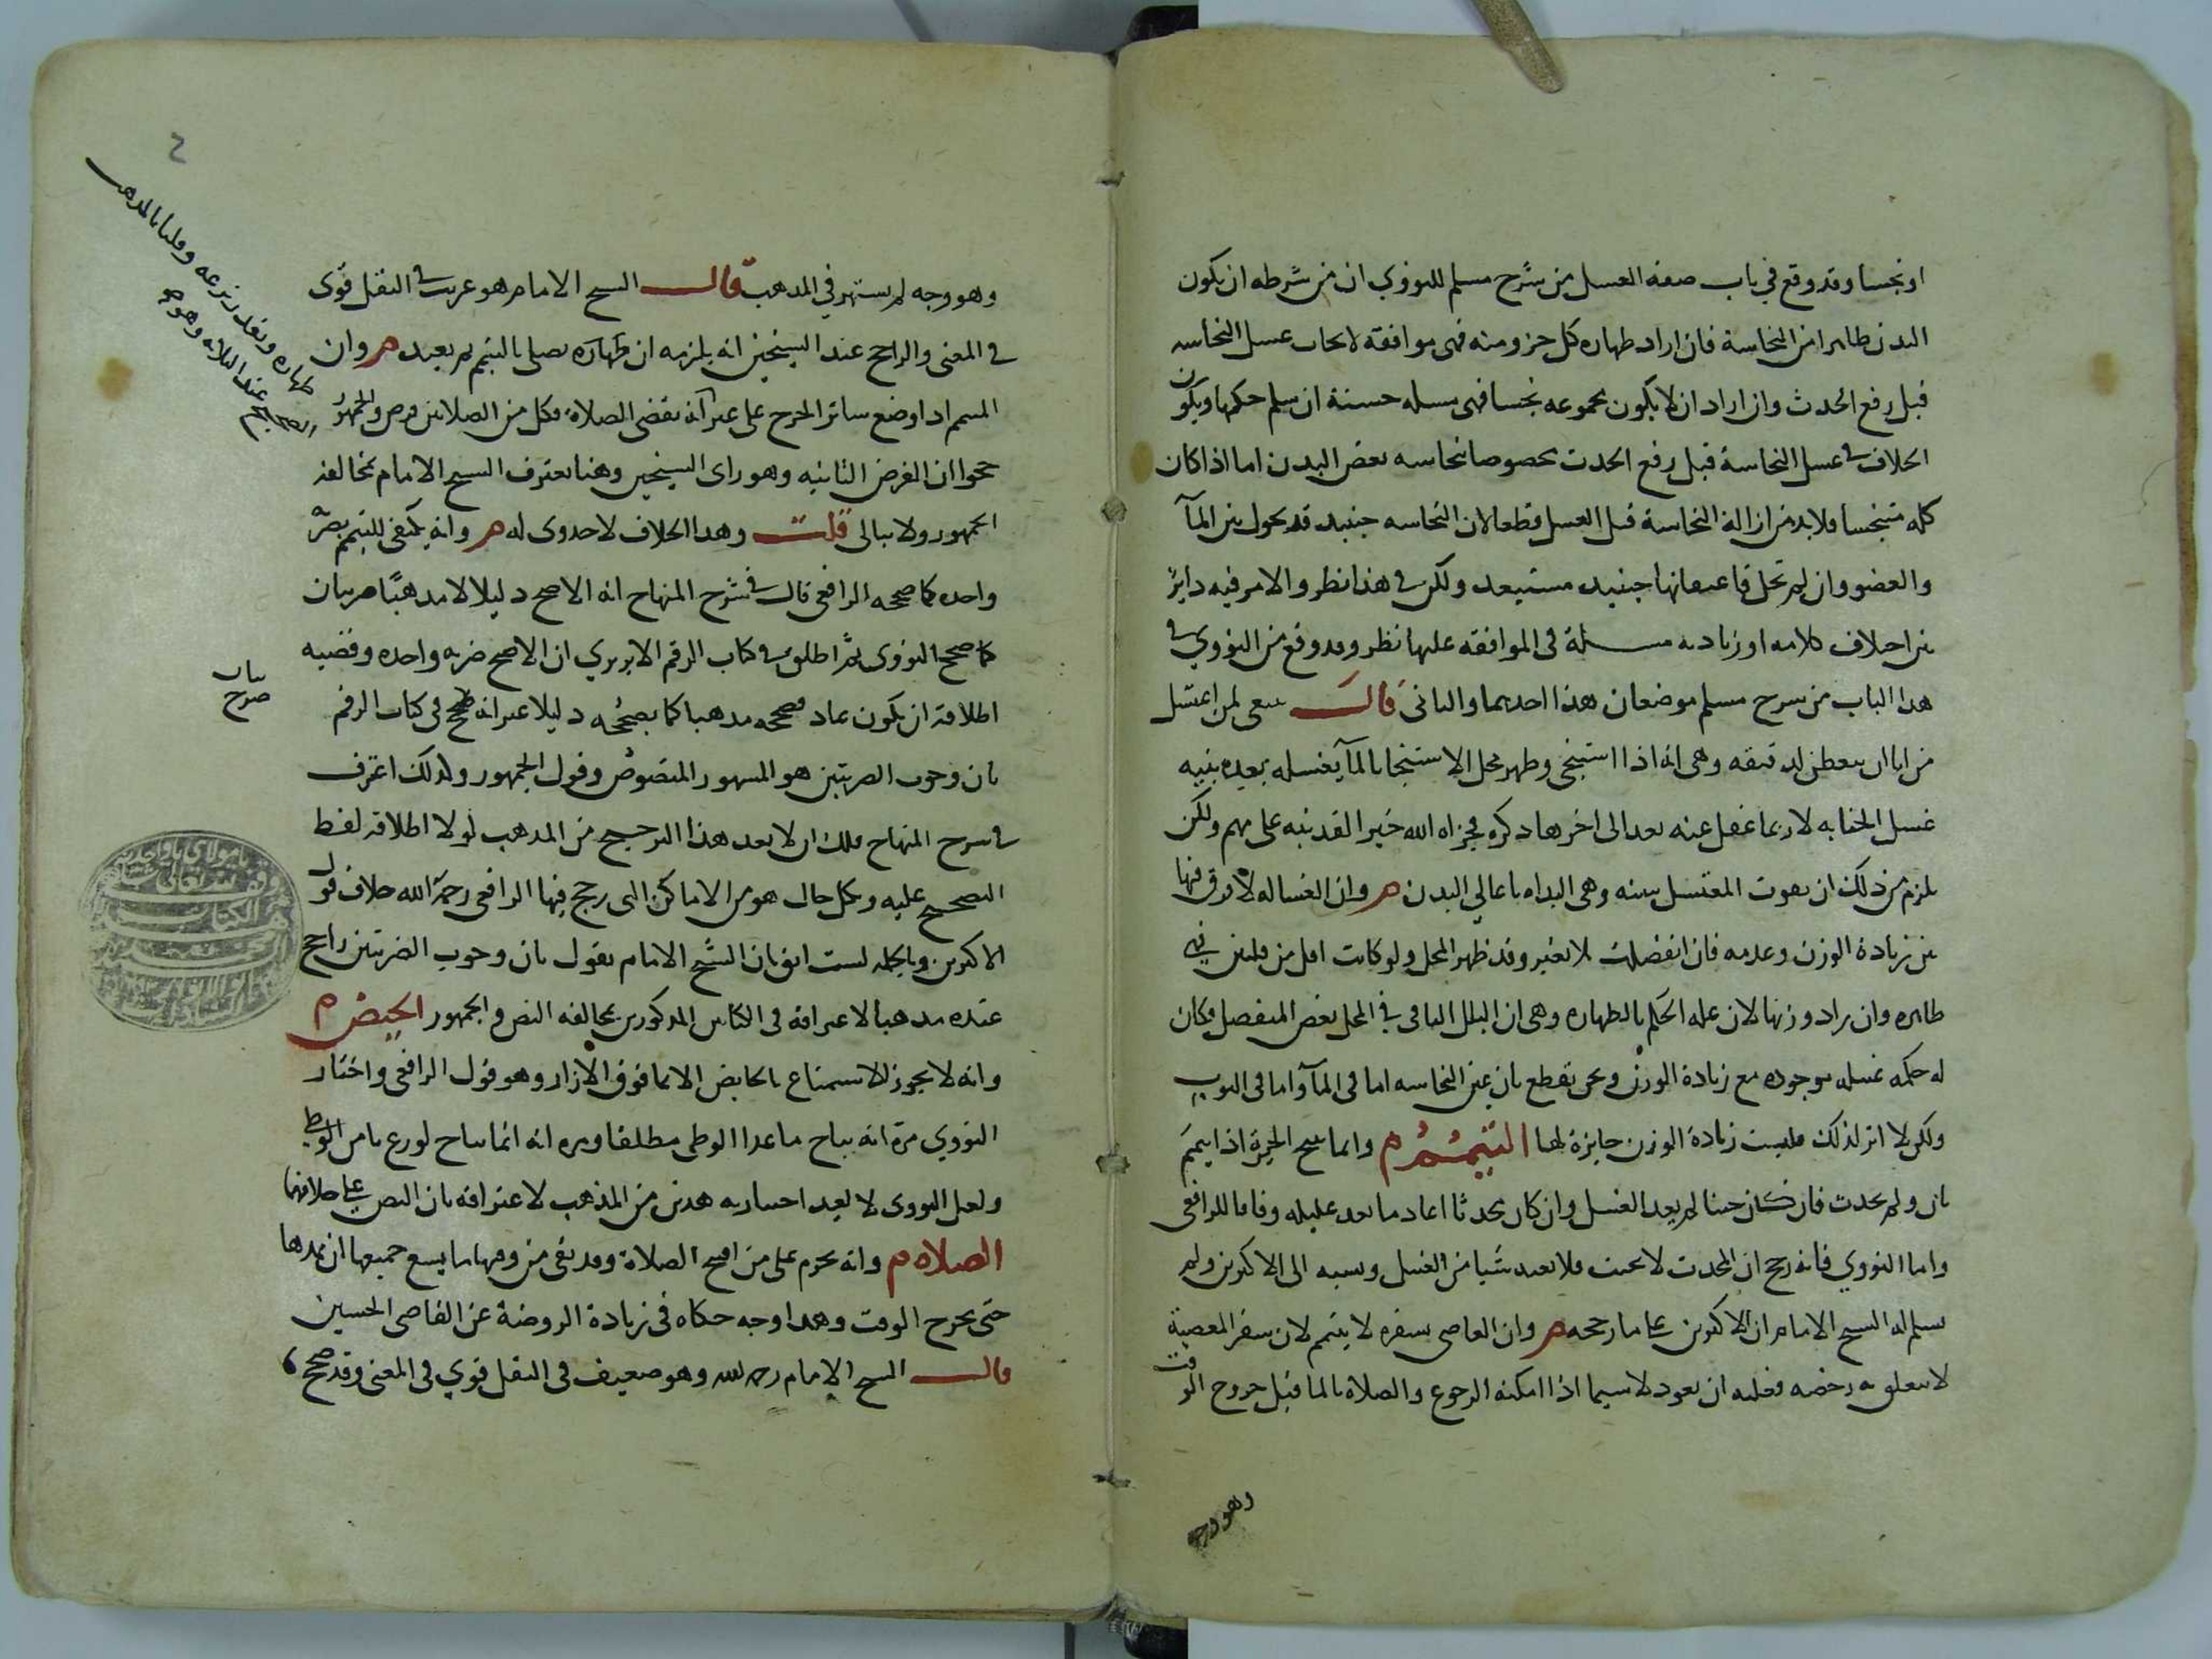 او نجسا وقد وقع في باب صفة الغسل من شرح مسلم للنووي ان من شرطه ان يكون
البدن طاهرا من النجاسة فان اراد طهارة كل جزو منه فهى موافقة لايجاب غسل النجاسه
قبل رفع الحدث وان اراد ان لا يكون بمجموعه نجسا فهى مسله حسنة ان سلم حكمها ويكون
الخلاف فى غسل النجاسة قبل رفع الحدث مخصوصا بنجاسه بعض البدن اما اذا كان
كله متنجسا فلا بد من ازالة النجاسة قبل الغسل قطعا لان النجاسه حينيد قد تحول بين المآ
والعضو وان لم تحل فاعيانها حينيد مستبعد ولكن فى هذا نظر والامر فيه دايرٌ
بين اختلاف كلامه او زيادة مسلة فى الموافقه عليها نظر وقد وقع من النووي فى
هذا الباب من شرح مسلم موضعان هذا احدهما والثانى قال ينبغى لمن اغتسل
من انا ان يتفطن لدقيقه وهى انه اذا استنجى وطهر محل الاستنجا بالمآ يغسله بعده بنيه
غسل الجنابه لانه ربما غفل عنه بعد الى اخر ما ذكره فجزاه الله خيرا لقد نبه على مهم ولكن
يلزم من ذلك ان يفوت المغتسل سنه وهى البداه باعالي البدن هر وان الغساله لا فرق فيها
بين زيادة الوزن وعدمه فان انفصلت بلا تغير وقد طهر المحل ولو كانت اقل من قلتين فهى
طاهره وان زاد وزنها لان عله الحكم بالطهاره وهى ان البلل الباقى في المحل بعض المنفصل فكان
له حكمه غسله موجوده مع زيادة الوزن ونحن نقطع بان عين النجاسه اما فى المآ واما فى الثوب
ولكن لا اثر لذلك فليست زيادة الوزن جايزة لها التيمم م وانما يمسح الجبيرة اذا تيمم
ثان ولم يحدث فان كان جنبا لم يعد الغسل وان كان محدثا اعاد ما بعد عليله وفاقا للرافعى
واما النووي فانه رجح ان المحدث كالجنب فلا يعيد شيا من الغسل ونسبه الى الاكثرين ولم
يسلم له الشيح الامام ان الاكثرين على ما رجحه هر وان العاصى بسفره لا يتيمم لان سفر المعصية
لا يتعلق به رخصه فعليه ان يعود لا سيما اذا امكنه الرجوع والصلاه بالما قبل خروج الوقت
وهو وجه
وهو وجه لم يشتهر في المذهب قال الشيح الامام هو غريب فى النقل قوى
فى المعنى والراجح عند الشيخين انه يلزمه ان يصلى بالتيمم ثم يعيد هر وان
المتيمم اذا وضع ساتر الجرح على غير طهارة يقضى الصلاة وكل من الصلاتين فرض والجمهور
رجحوا ان الفرض الثانيه وهو راى الشيخين وهنا يعترف الشيح الامام بمخالفة
الجمهور ولا يبالى قلت وهذا الخلاف لا جدوى له هر وانه يكفى للتيمم ضربة
واحده كما صححه الرافعى قال فى شرح المنهاح انه الاصح دليلا لا مذهبًا
كما صحح النووى ثم اطلق فى كتاب الرقم الابريزي ان الاصح ضربه واحده وقضيه
اطلاقه ان يكون عاد فصححه مذهبا كما يصححه دليلا غير انه صرح فى كتاب الرقم
بان وجوب الضربتين هو المشهور المنصوص وقول الجمهور ولذلك اعترف
فى شرح المنهاح قلت ان لا يعد هذا الترجيح من المذهب لولا اطلاقه لفظ
الصحيح عليه وبكل حال هو من الاماكن التى رجح فيها الرافعى رحمه الله خلاف قول
الاكثرين وبالجمله لست اثق بان الشيخ الامام يقول بان وجوب الضربتين راجح
عنده مذهبا لاعترافه فى الكتابين المذكورين بمخالفه النص والجمهور الحيض م
وانه لا يجوز الاستمتاع بالحايض الا بما فوق الازار وهو قول الرافعى واختار
النووي مرة انه يباح ما عدا الوطى مطلقا ومره انه انما يباح لورع يامن الوطى
ولعل النووى لا يعد اختياريه هذين من المذهب لاعترافه بان النص على خلافهما
الصلاه م وانه يحرم على من افتتح الصلاة وقد بقى من وقتها ما يسع جميعها ان يمدها
حتى يخرج الوقت وهذا وجه حكاه فى زيادة الروضة عن القاصى الحسين
قال الشيح الامام رحمه الله وهو ضعيف فى النقل قوي فى المعنى وقد صحح
بيان
صرح